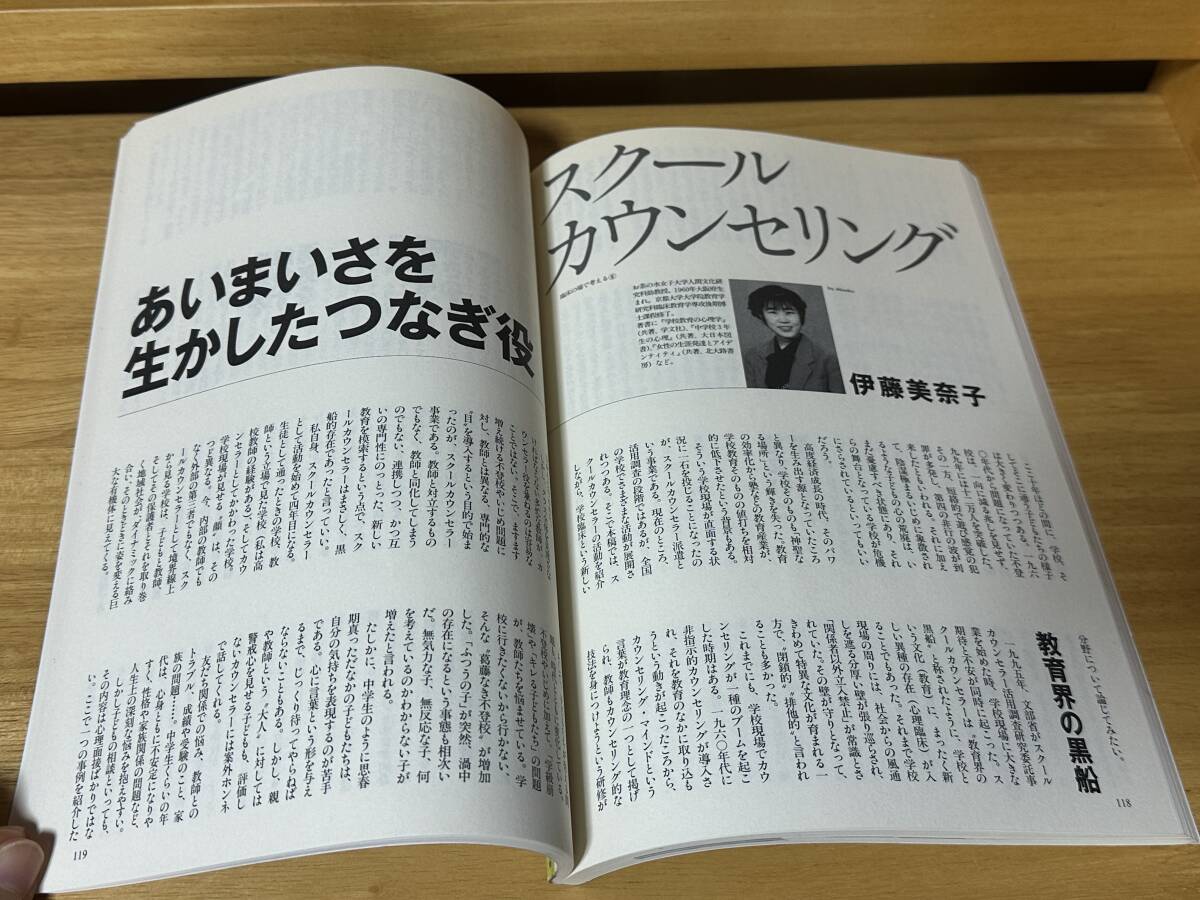 スクール
カウンセリング
臨床の場で考える⑧
お茶の水女子大学人間文化研
究科助教授。1960年大阪府生
まれ。京都大学大学院教育学
研究科臨床教育学専攻後期博
士課程修了。
著書に『学校教育の心理学』
(共著、学文社)、『中学校3年
生の心理』(共著、大日本図
書)、『女性の生涯発達とアイデ
ンティティ』(共著、北大路書
房)など。
伊藤美奈子
ここ十年ほどの間に、学校、そ
してそこに通う子どもたちの様子
は大きく変わりつつある。一九六
〇年代から問題になった「不登
校」は、一向に減る兆しを見せず、
九九年には十三万人を突破した。
その一方、短絡的で遊び感覚の犯
罪が多発し、第四の非行の波が到
来したともいわれる。それに加え
て、陰湿極まるいじめに象徴され
るような子どもの心の荒廃は、い
まだ憂慮すべき状態にあり、それ
らの舞台となっている学校が危機
にさらされているといってもいい
だろう。
高度経済成長の時代、そのパワ
ーを生み出す源となっていたころ
とは異なり、学校そのものも“神聖な
る場所”という輝きを失った。教育
の効率化から塾などの教育産業が、
学校教育そのものの値打ちを相対
的に低下させたという背景もある。
そういう学校現場が直面する状
況に一石を投じることになったの
が、スクールカウンセラー派遣と
いう事業である。現在のところ、
活用調査の段階ではあるが、全国
の学校でさまざまな活動が展開さ
れつつある。そこで本稿では、ス
クールカウンセラーの活動を紹介
しながら、学校臨床という新しい
分野について論じてみたい。
教育界の黒船
一九九五年、文部省がスクール
カウンセラー活用調査研究委託事
業を始めた時、学校現場に大きな
期待と不安が同時に起こった。ス
クールカウンセラーは、“教育界の
黒船”と称されたように、学校と
いう文化(教育)に、まったく新
しい異種の存在(心理臨床)が入
ることでもあった。それまで学校
現場の周りには、社会からの風通
しを遮る分厚い壁が張り巡らされ、
“関係者以外立入禁止”が常識とさ
れていた。その壁が守りとなって、
きわめて特異な文化が育まれる一
方で、“閉鎖的”“排他的”と言われ
ることも多かった。
これまでにも、学校現場でカウ
ンセリングが一種のブームを起こ
した時期はある。一九六〇年代に
非指示的カウンセリングが導入さ
れ、それを教育のなかに取り込も
うという動きが起こったころから、
カウンセリング・マインドという
言葉が教育理念の一つとして掲げ
られ、教師もカウンセリング的な
技法を身につけようという研修が
118
あいまいさを
生かしたつなぎ役
ウンセラー役を兼ねるのは容易な
ことではない。そこで、ますます
増え続ける不登校やいじめ問題に
対し、教師とは異なる、専門的な
“目”を導入するという目的で始ま
ったのが、スクールカウンセラー
事業である。教師と対立するもの
でもなく、教師と同化してしまう
のでもない、連携しつつ、かつ互
いの専門性にのっとった、新しい
教育を模索するという点で、スク
ールカウンセラーはまさしく、黒
船的存在であったと言っていい。
私自身、スクールカウンセラー
として活動を始めて四年目になる。
生徒として通ったときの学校、教
師という立場で見た学校(私は高
校教師の経験がある)そしてカウ
ンセラーとしてかかわった学校。
学校現場が見せる“顔”は、その
つど異なる。今、内部の教師でも
なく外部の第三者でもなく、スク
ールカウンセラーとして境界線上
から見る学校は、子どもと教師、
そしてその保護者とそれを取り巻
く地域社会が、ダイナミックに絡み
合い、そのときどきに姿を変える巨
大な有機体に見えてくる。
壊」や「キレる子どもたち」の問題
が、教師たちを悩ませている。学
校に行きたくないから行かない、
そんな“葛藤なき不登校”が増加
した。「ふつうの子」が突然、渦中
の存在になるという事態も相次い
だ。無気力な子、無反応な子、何
を考えているのかわからない子が
増えたと言われる。
たしかに、中学生のように思春
期真っただなかの子どもたちは、
自分の気持ちを表現するのが苦手
である。心に言葉という形を与え
るまで、じっくり待ってやらねば
ならないこともある。しかし、親
や教師という“大人”に対しては
警戒心を見せる子どもも、評価し
ないカウンセラーには案外ホンネ
で話してくれる。
友だち関係での悩み、教師との
トラブル、成績や受験のこと、家
族の問題……。中学生くらいの年
代は、心身ともに不安定になりや
すく、性格や家族関係の問題など、
人生上の深刻な悩みを抱えやすい。
しかし子どもの相談といっても、
その内容は心理面接ばかりではな
い。ここで一つの事例を紹介した
119